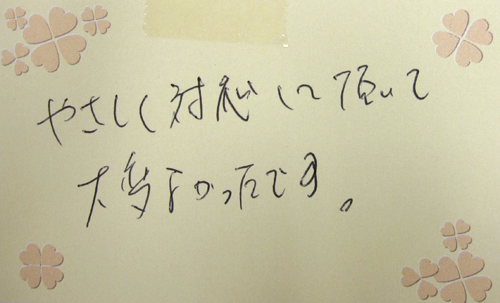 やさしく対応して頂いて
大変よかったです。